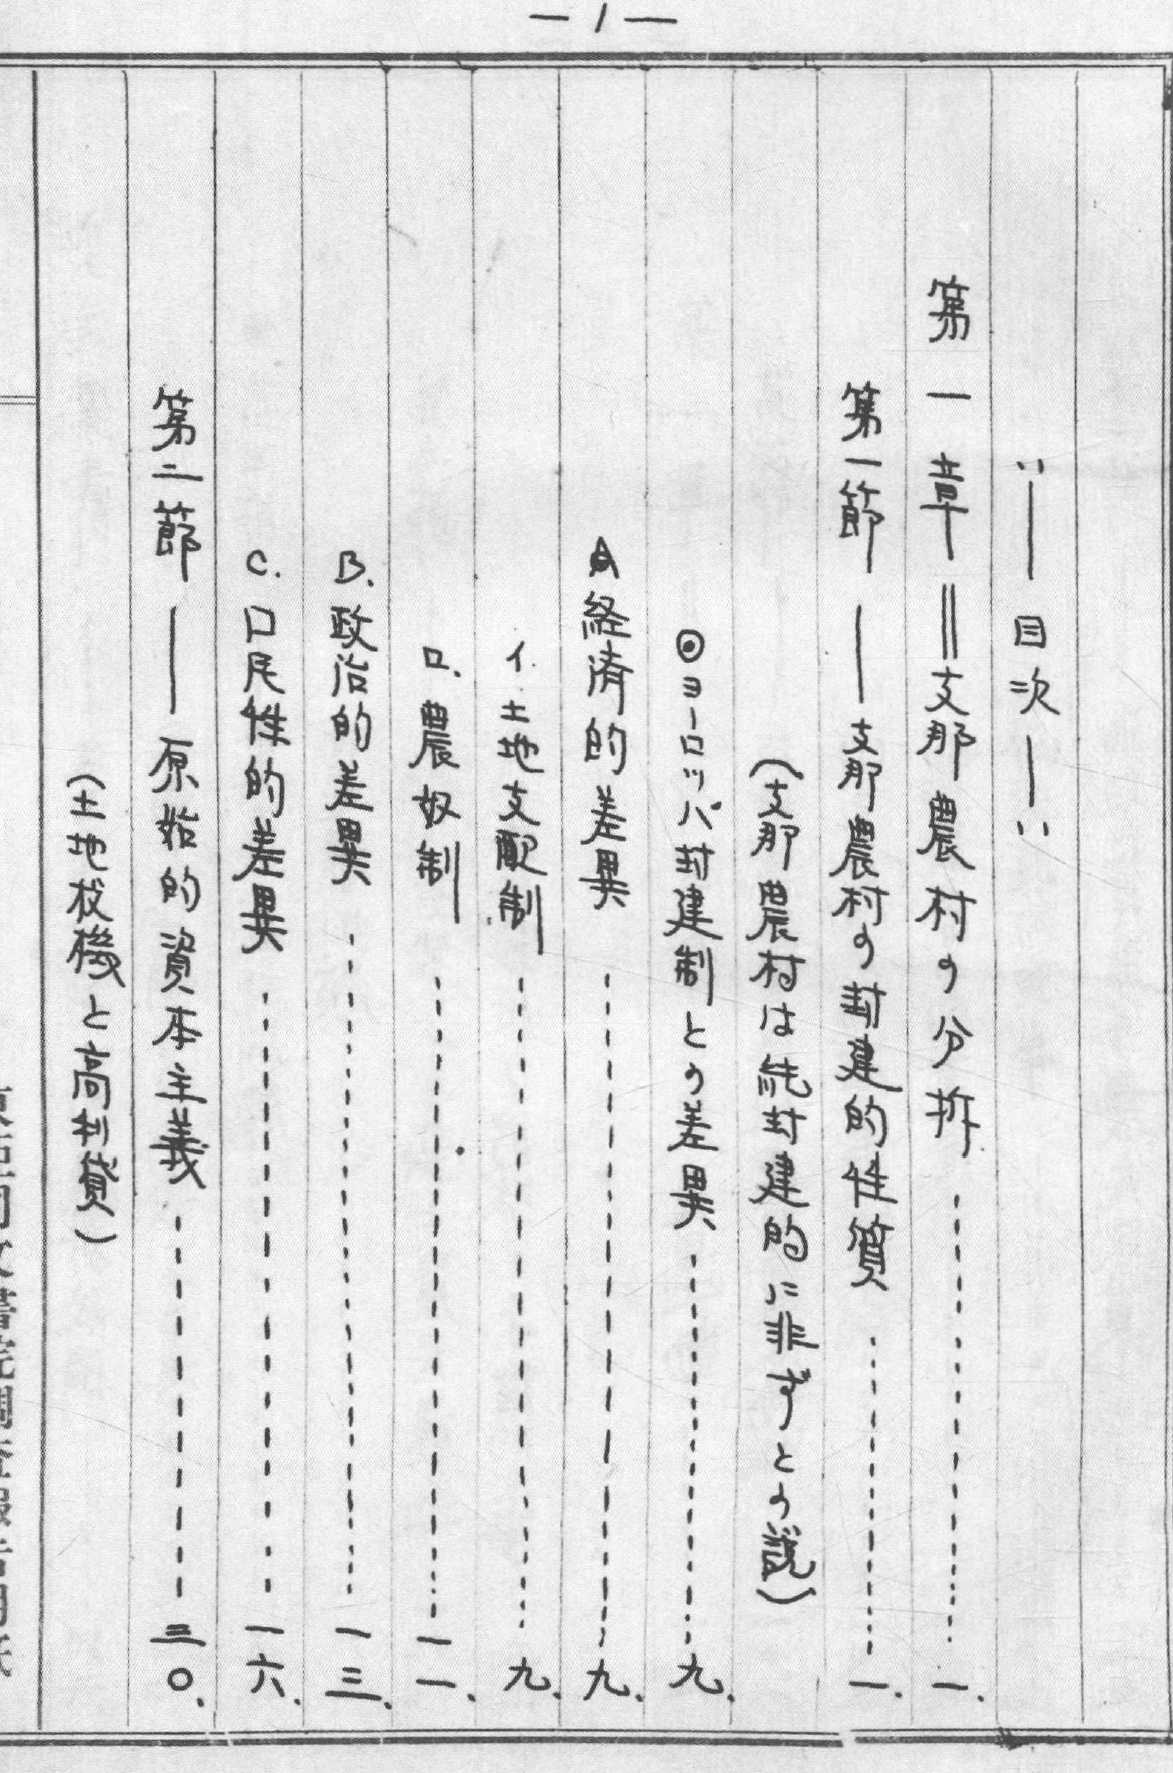 — 1 —
〃—— 目次 ——〃
第一章＝支那農村の分拆………一、
第一節——支那農村の封建的性質………一、
(支那農村は純封建的に非ずとの説)
◎ヨーロッパ封建制との差異………九、
A経済的差異………九、
イ、土地支配制………九、
ロ、農奴制………一一、
B、政治的差異………一三、
C、口民性的差異………一六、
第二節——原始的資本主義………三〇、
(土地投機と高利貸)